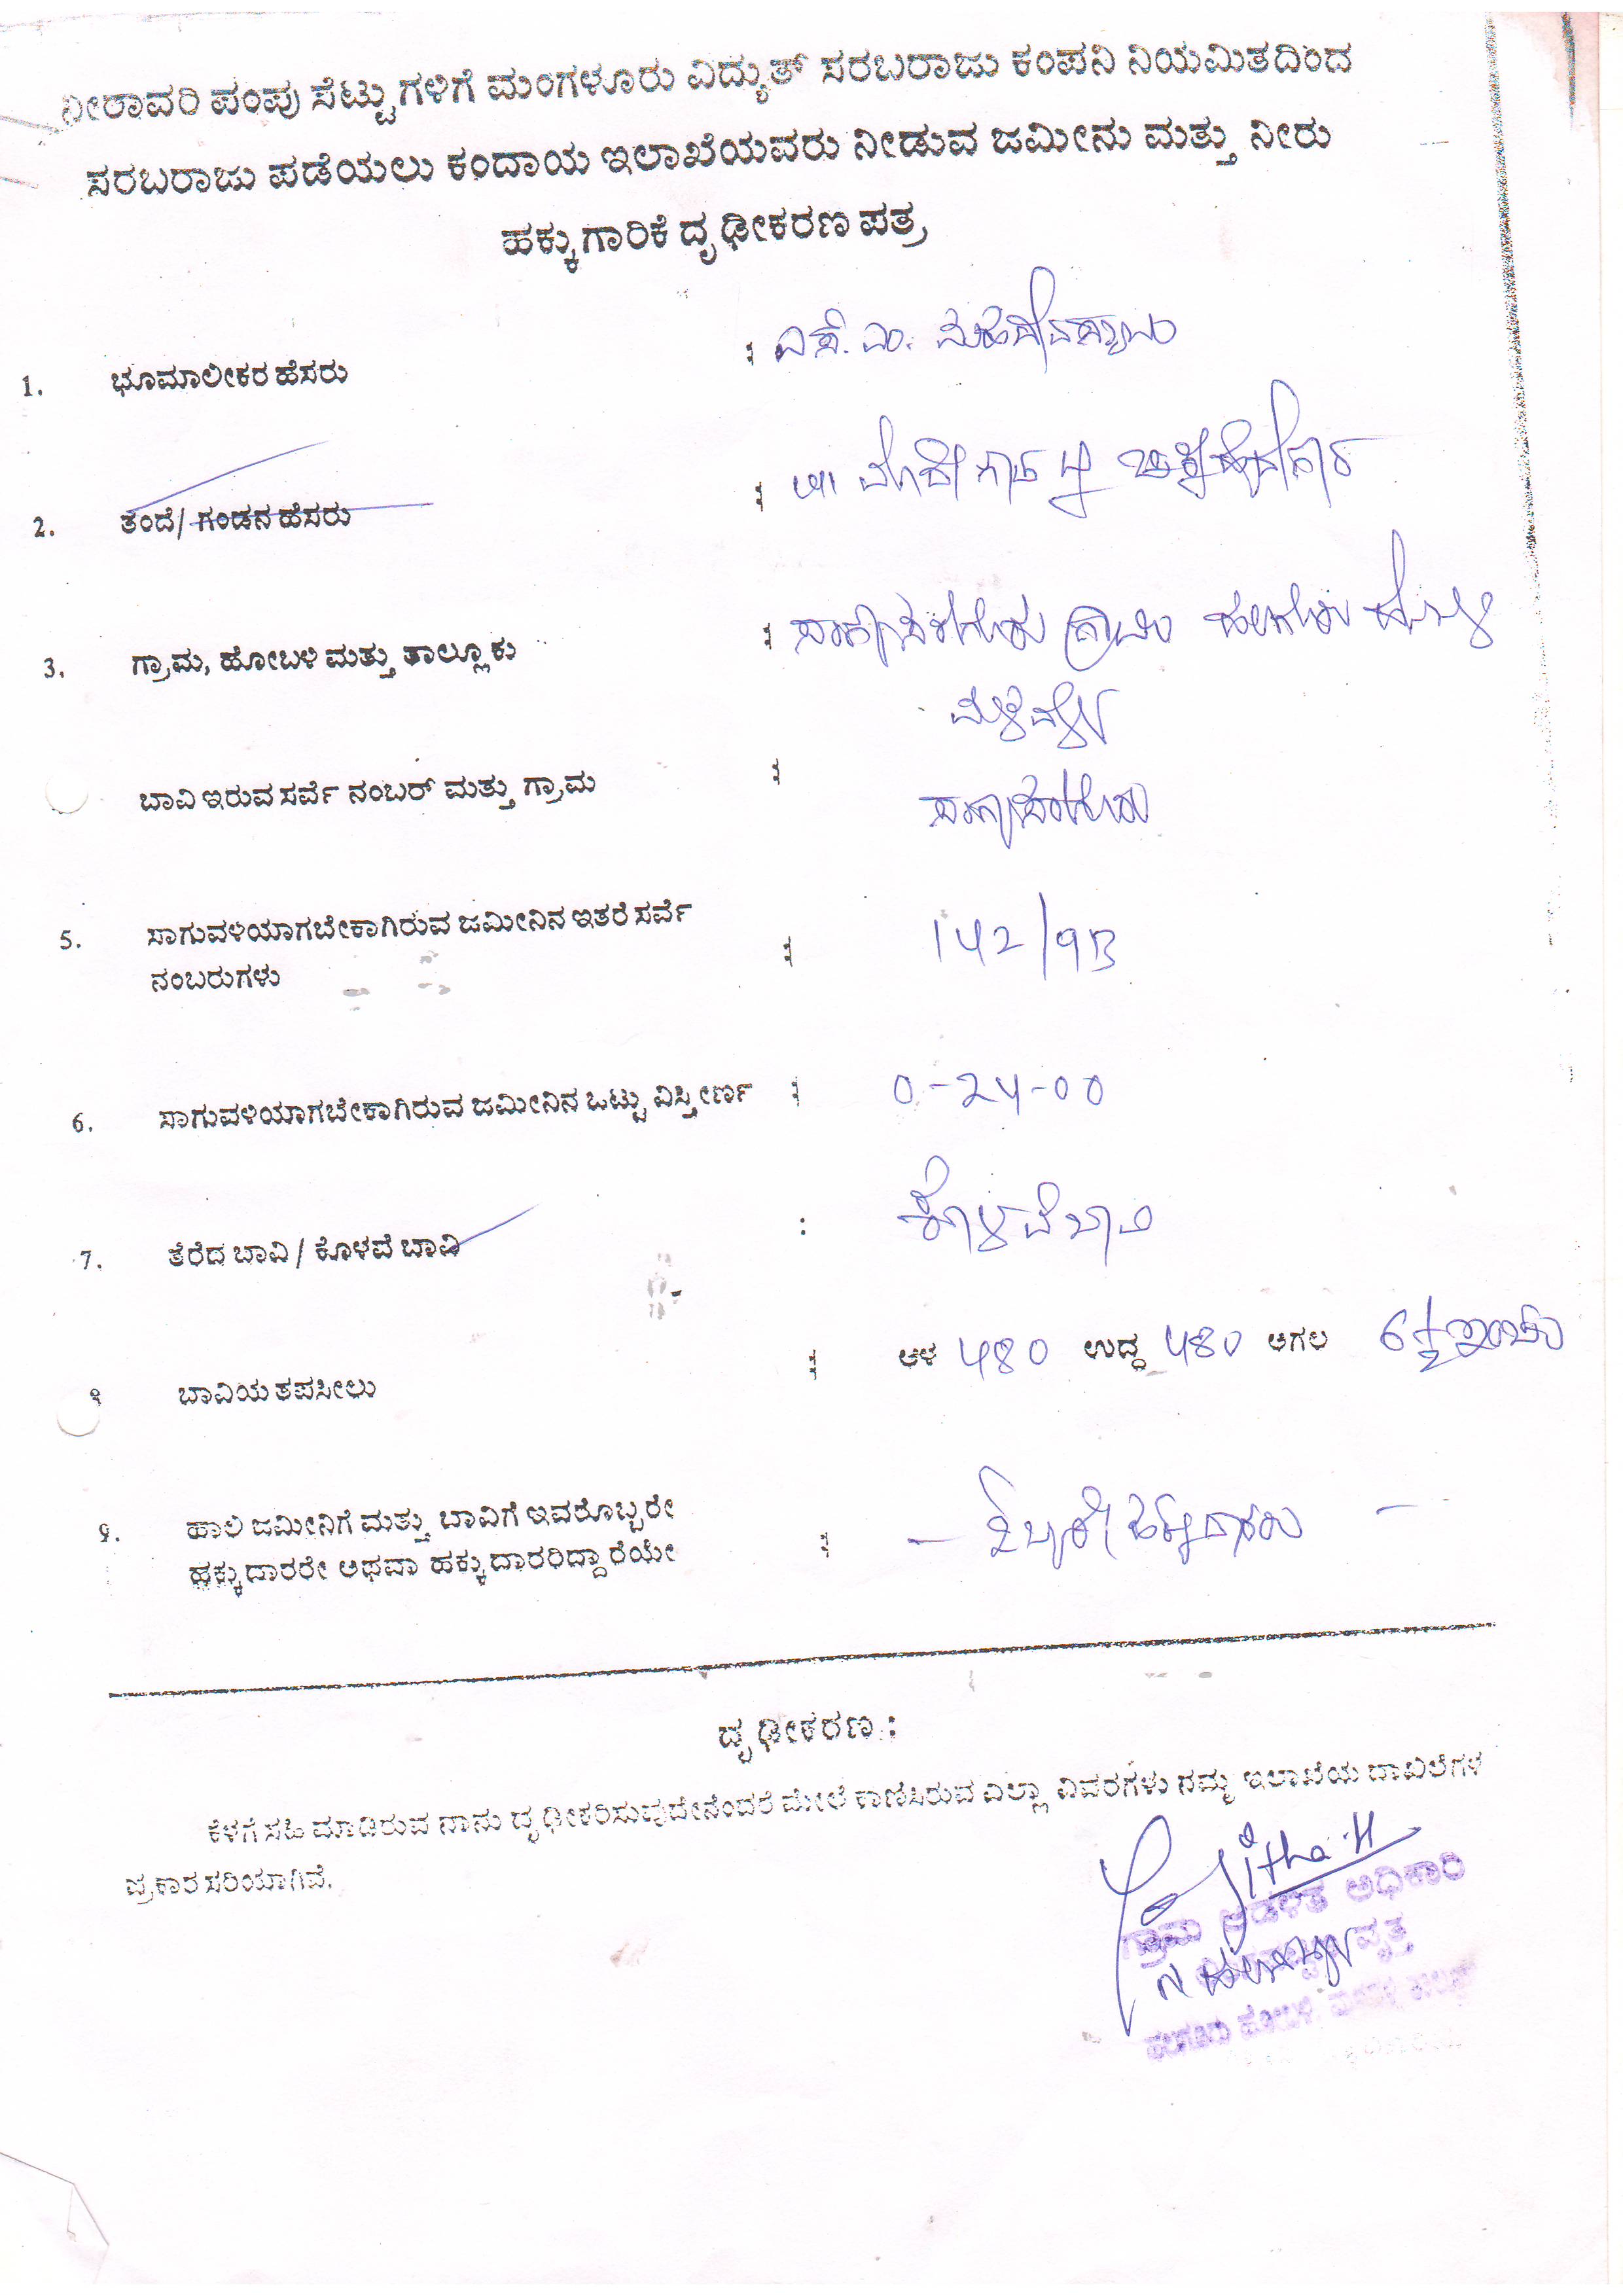 ನೀರಾವರಿ ಪಂಪು ಸೆಟ್ಟುಗಳಿಗೆ ಮಂಗಳೂರು ವಿದ್ಯುತ್ ಸರಬರಾಜು ಕಂಪನಿ ನಿಯಮಿತದಿಂದ
ಸರಬರಾಜು ಪಡೆಯಲು ಕಂದಾಯ ಇಲಾಖೆಯವರು ನೀಡುವ ಜಮೀನು ಮತ್ತು ನೀರು
ಹಕ್ಕುಗಾರಿಕೆ ದೃಢೀಕರಣ ಪತ್ರ
1. ಭೂಮಾಲೀಕರ ಹೆಸರು : ಎಸ್. ಎಂ.
2. ತಂದೆ/ ಗಂಡನ ಹೆಸರು :
3. ಗ್ರಾಮ, ಹೋಬಳಿ ಮತ್ತು ತಾಲ್ಲೂಕು : ಗ್ರಾಮ ಹಲಗೂರು ಹೋಬಳಿ
ಮಳವಳ್ಳಿ
ಬಾವಿ ಇರುವ ಸರ್ವೆ ನಂಬರ್ ಮತ್ತು ಗ್ರಾಮ :
5. ಸಾಗುವಳಿಯಾಗಬೇಕಾಗಿರುವ ಜಮೀನಿನ ಇತರೆ ಸರ್ವೆ
ನಂಬರುಗಳು : 142/9B
6. ಸಾಗುವಳಿಯಾಗಬೇಕಾಗಿರುವ ಜಮೀನಿನ ಒಟ್ಟು ವಿಸ್ತೀರ್ಣ : 0-24-00
7. ತೆರೆದ ಬಾವಿ / ಕೊಳವೆ ಬಾವಿ : ಕೊಳವೆ ಬಾವಿ
8 ಬಾವಿಯ ತಪಸೀಲು : ಆಳ 480 ಉದ್ದ 480 ಅಗಲ 6½ ಇಂಚು
9. ಹಾಲಿ ಜಮೀನಿಗೆ ಮತ್ತು ಬಾವಿಗೆ ಇವರೊಬ್ಬರೇ
ಹಕ್ಕುದಾರರೇ ಅಥವಾ ಹಕ್ಕುದಾರರಿದ್ದಾರೆಯೇ : - ಒಬ್ಬರೇ ಹಕ್ಕುದಾರರು -
ದೃಢೀಕರಣ :
ಕೆಳಗೆ ಸಹಿ ಮಾಡಿರುವ ನಾನು ದೃಢೀಕರಿಸುವುದೇನೆಂದರೆ ಮೇಲೆ ಕಾಣಿಸಿರುವ ಎಲ್ಲಾ ವಿವರಗಳು ನಮ್ಮ ಇಲಾಖೆಯ ದಾಖಲೆಗಳ
ಪ್ರಕಾರ ಸರಿಯಾಗಿವೆ.
ಗ್ರಾಮ ಆಡಳಿತ ಅಧಿಕಾರಿ
ವೃತ್ತ
ಹಲಗೂರು ಹೋಬಳಿ, ಮಳವಳ್ಳಿ ತಾಲ್ಲೂಕು